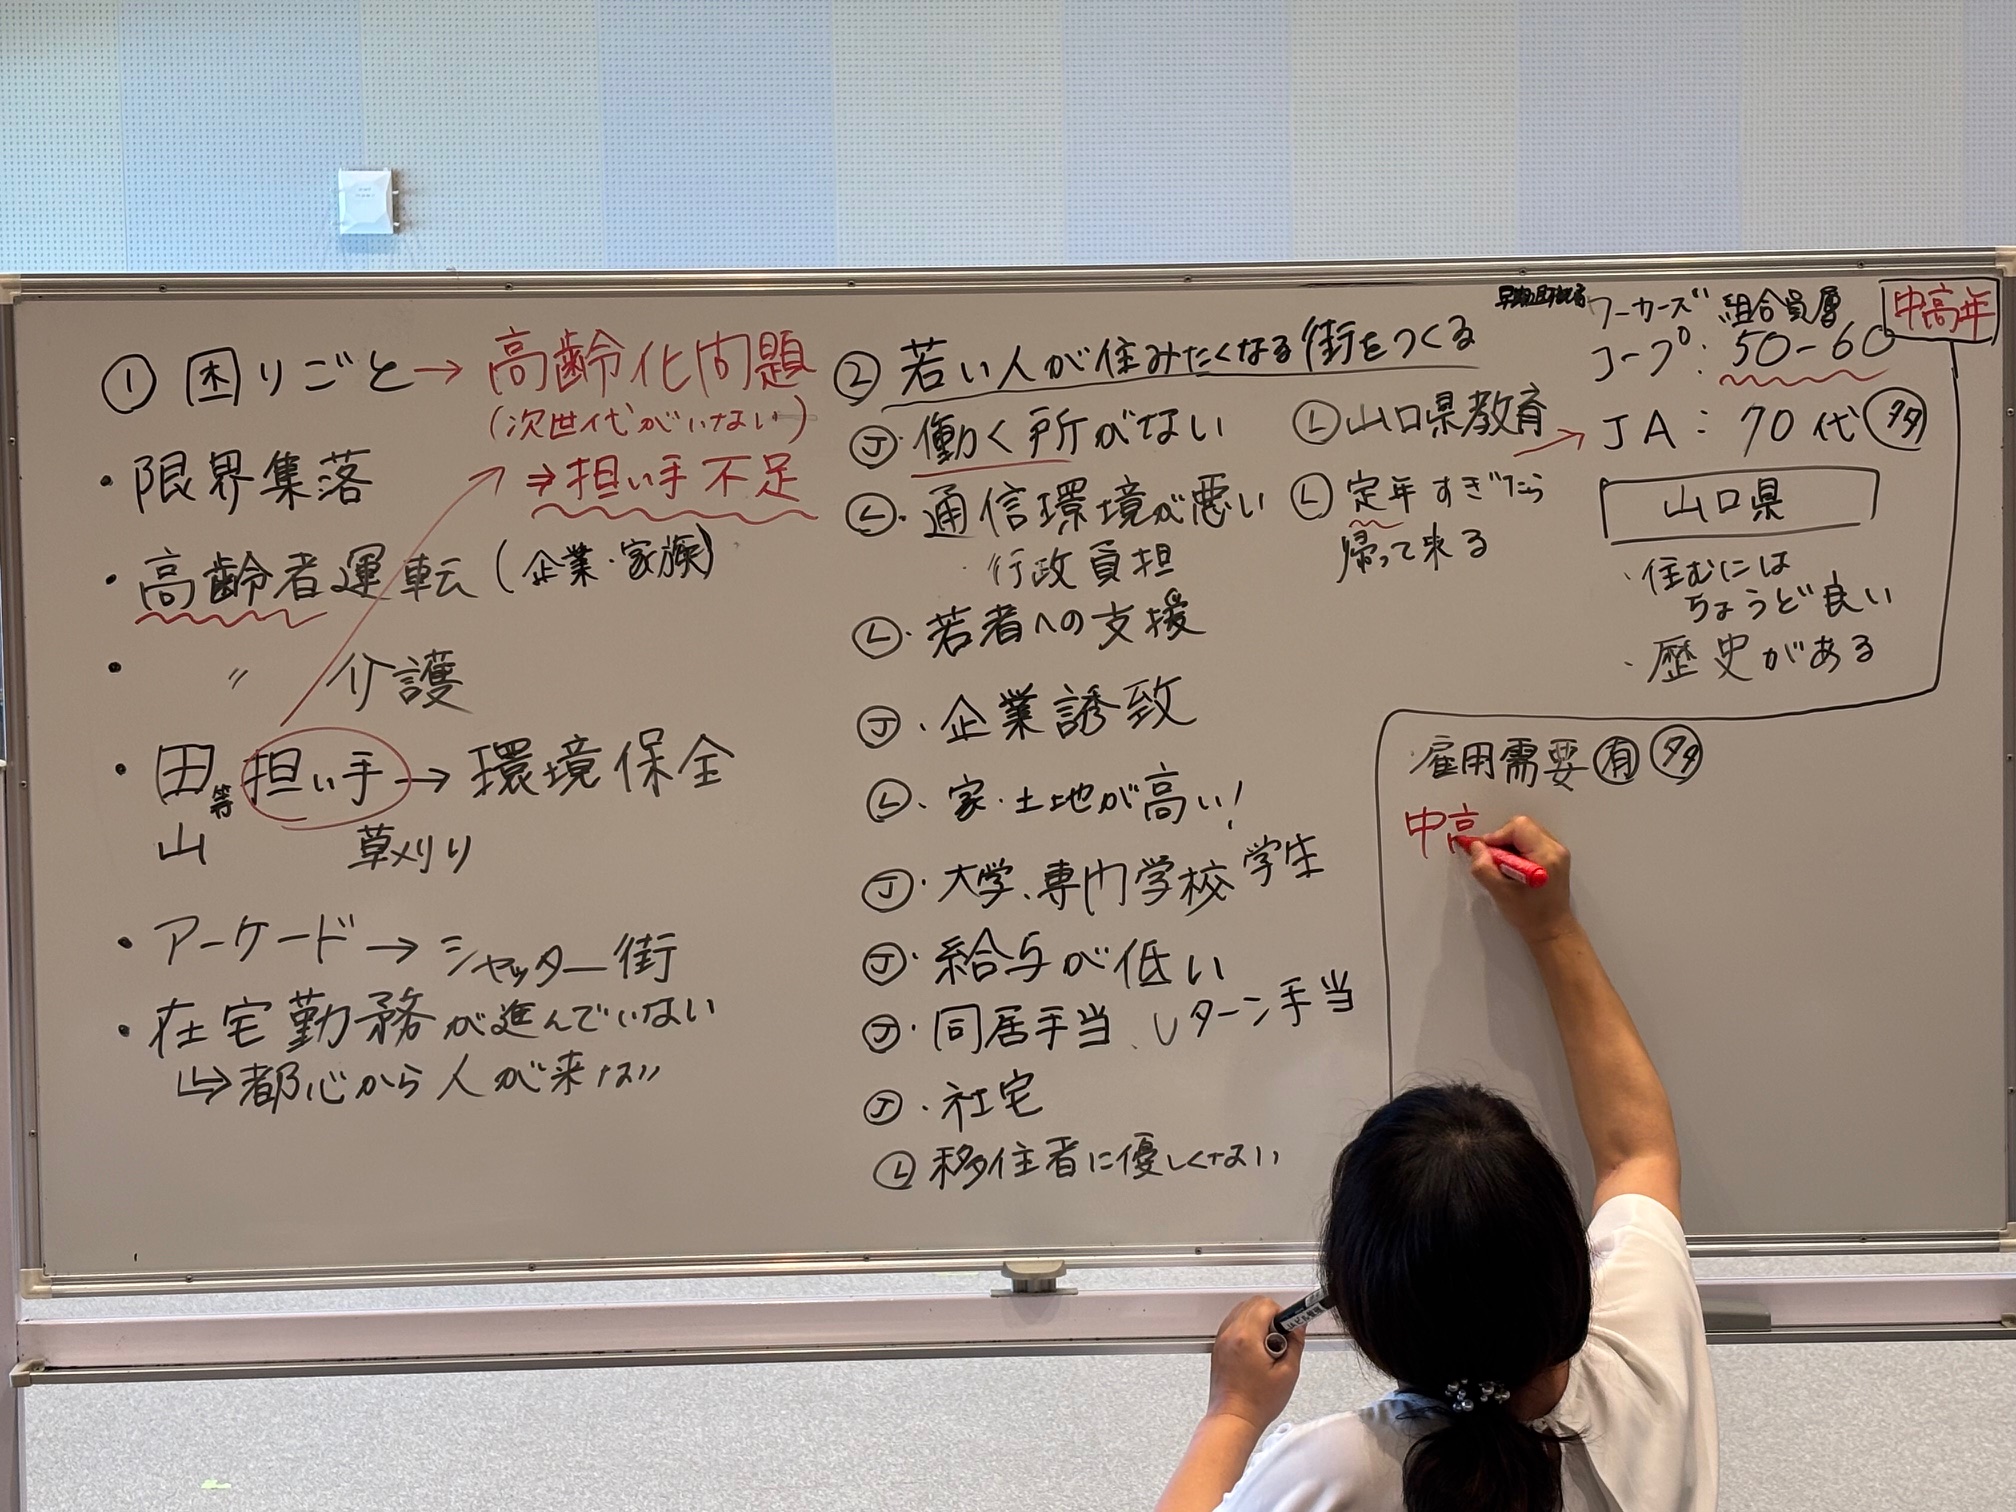 ① 困りごと→高齢化問題
(次世代がいない)
⇒担い手不足
・限界集落
・高齢者運転(企業・家族)
・〃 介護
・田等担い手→環境保全
山 草刈り
・アーケード→シャッター街
・在宅勤務が進んでいない
↳都心から人が来ない
② 若い人が住みたくなる街をつくる
Ⓙ・働く所がない
Ⓛ・通信環境が悪い
・行政負担
Ⓛ・若者への支援
Ⓙ・企業誘致
Ⓛ・家・土地が高い!
Ⓙ・大学、専門学校 学生
Ⓙ・給与が低い
Ⓙ・同居手当、Uターン手当
Ⓙ・社宅
Ⓛ 移住者に優しくない
Ⓛ 山口県教育
Ⓛ 定年すぎたら
帰って来る
ワーカーズ 組合員層
コープ:50-60
中高年
→JA:70代 多
山口県
・住むには
ちょうど良い
・歴史がある
・雇用需要 有 多
中高